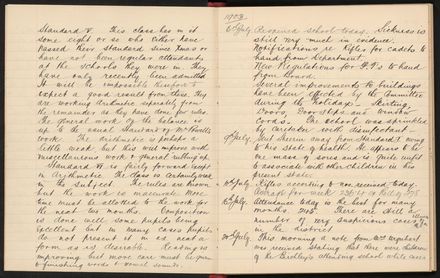 Standard V. This class has in it
some eight or so who either have
passed their standard since Xmas or
have not been regular attendants
at the schools they were in. They
have only recently been admitted
It will be impossible therefore to
expect a good result from these. They
are working Arithmetic separately from
the remainder as they have done for
The general work of the balance is
up to the usual standard of Mr
work. The Arithmetic is perhaps a
little weak but this will improve with
miscellaneous work & general
Standard VI is fairly forward except
in Arithmetic. The class is certainly weak
in the subject. The rules are known
but the work is inaccurate. More
time must be allotted to the work for
the next two months. Composition
is done well some pupils being
excellent but in many cases pupils
do not present it in as neat a
form as is desirable. Reading is
improving but more care must be given
to finishing words & vowel sounds.
1903
6th July Resumed school today. Sickness is
still very much in evidence.
Notifications re Rifles for cadets to
hand from Department.
New Regulations for P.Ts to hand
from Board.
Several improvements to buildings
have been effected by the Committee
during the holidays. Skirting
Doors, Door stops and window
Cords. The school was sprinkled
by caretaker with disinfectant.
9th July. Sent away from Standard I owing
to his state of health. He appears to be
one mass of sores and is quite unfit
to associate with other children in his
present state.
10th July Rifles according to
Average for week
Attendance today is the best for many
months. There are still a
number of very suspicious cases
in the district
This morning a note from Mr
was received stating that three more children
of the family attending school while cases